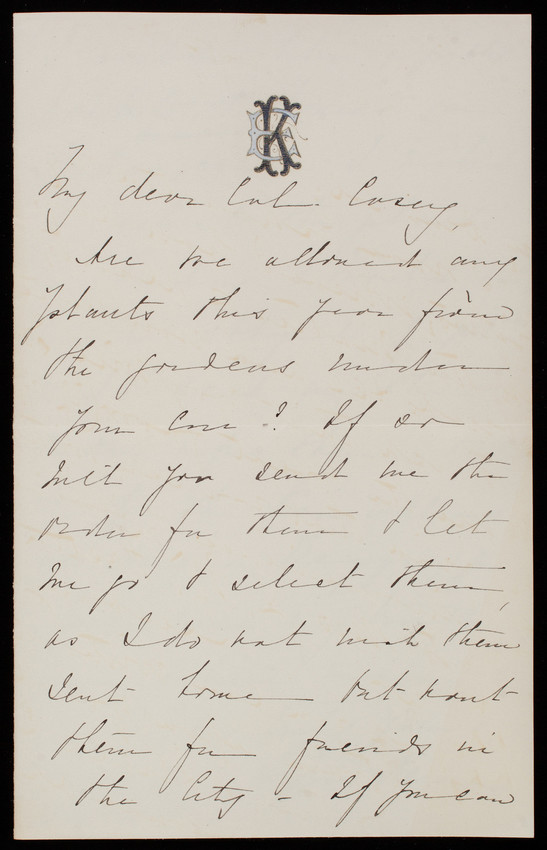 My dear Col. Casey,
Are we allowed any
plants this year from
the gardens under
your care? If so
will you send me the
order for them & let
me go & select them,
as I do not wish them
sent home but want
them for friends in
the City - If you can